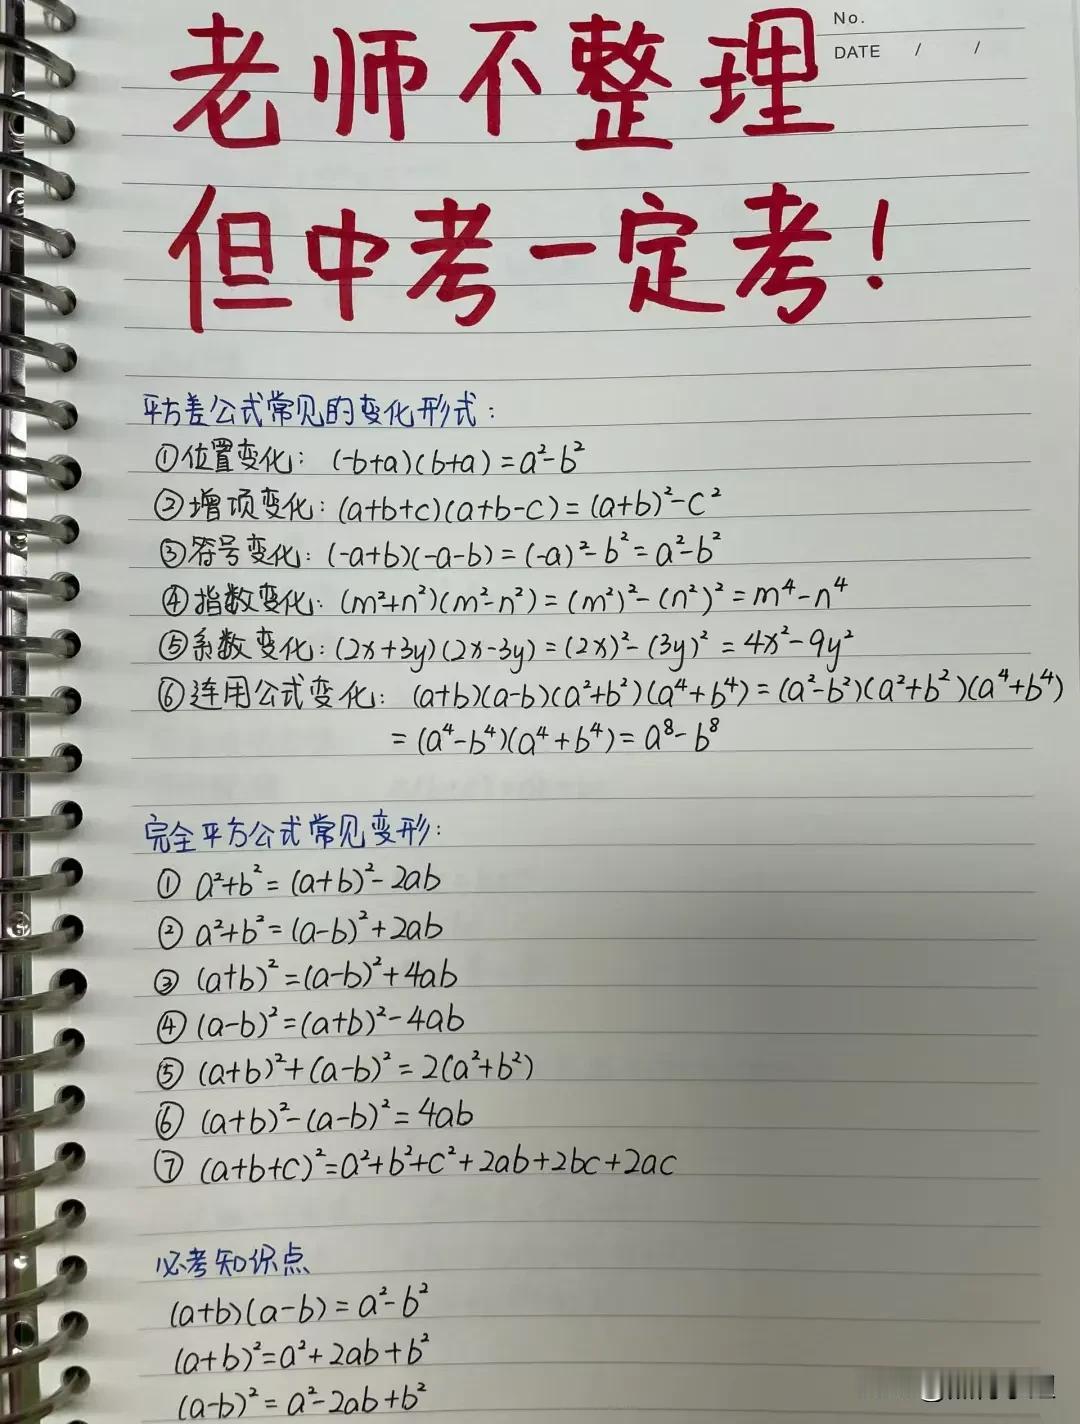 No.
DATE / /
老师不整理
但中考一定考！
平方差公式常见的变化形式：
①位置变化：(-b+a)(b+a)=a²-b²
②增项变化：(a+b+c)(a+b-c)=(a+b)²-c²
③符号变化：(-a+b)(-a-b)=(-a)²-b²=a²-b²
④指数变化：(m²+n²)(m²-n²)=(m²)²-(n²)²=m⁴-n⁴
⑤系数变化：(2x+3y)(2x-3y)=(2x)²-(3y)²=4x²-9y²
⑥连用公式变化：(a+b)(a-b)(a²+b²)(a⁴+b⁴)=(a²-b²)(a²+b²)(a⁴+b⁴)
=(a⁴-b⁴)(a⁴+b⁴)=a⁸-b⁸
完全平方公式常见变形：
① a²+b²=(a+b)²-2ab
② a²+b²=(a-b)²+2ab
③ (a+b)²=(a-b)²+4ab
④ (a-b)²=(a+b)²-4ab
⑤ (a+b)²+(a-b)²=2(a²+b²)
⑥ (a+b)²-(a-b)²=4ab
⑦ (a+b+c)²=a²+b²+c²+2ab+2bc+2ac
必考知识点
(a+b)(a-b)=a²-b²
(a+b)²=a²+2ab+b²
(a-b)²=a²-2ab+b²